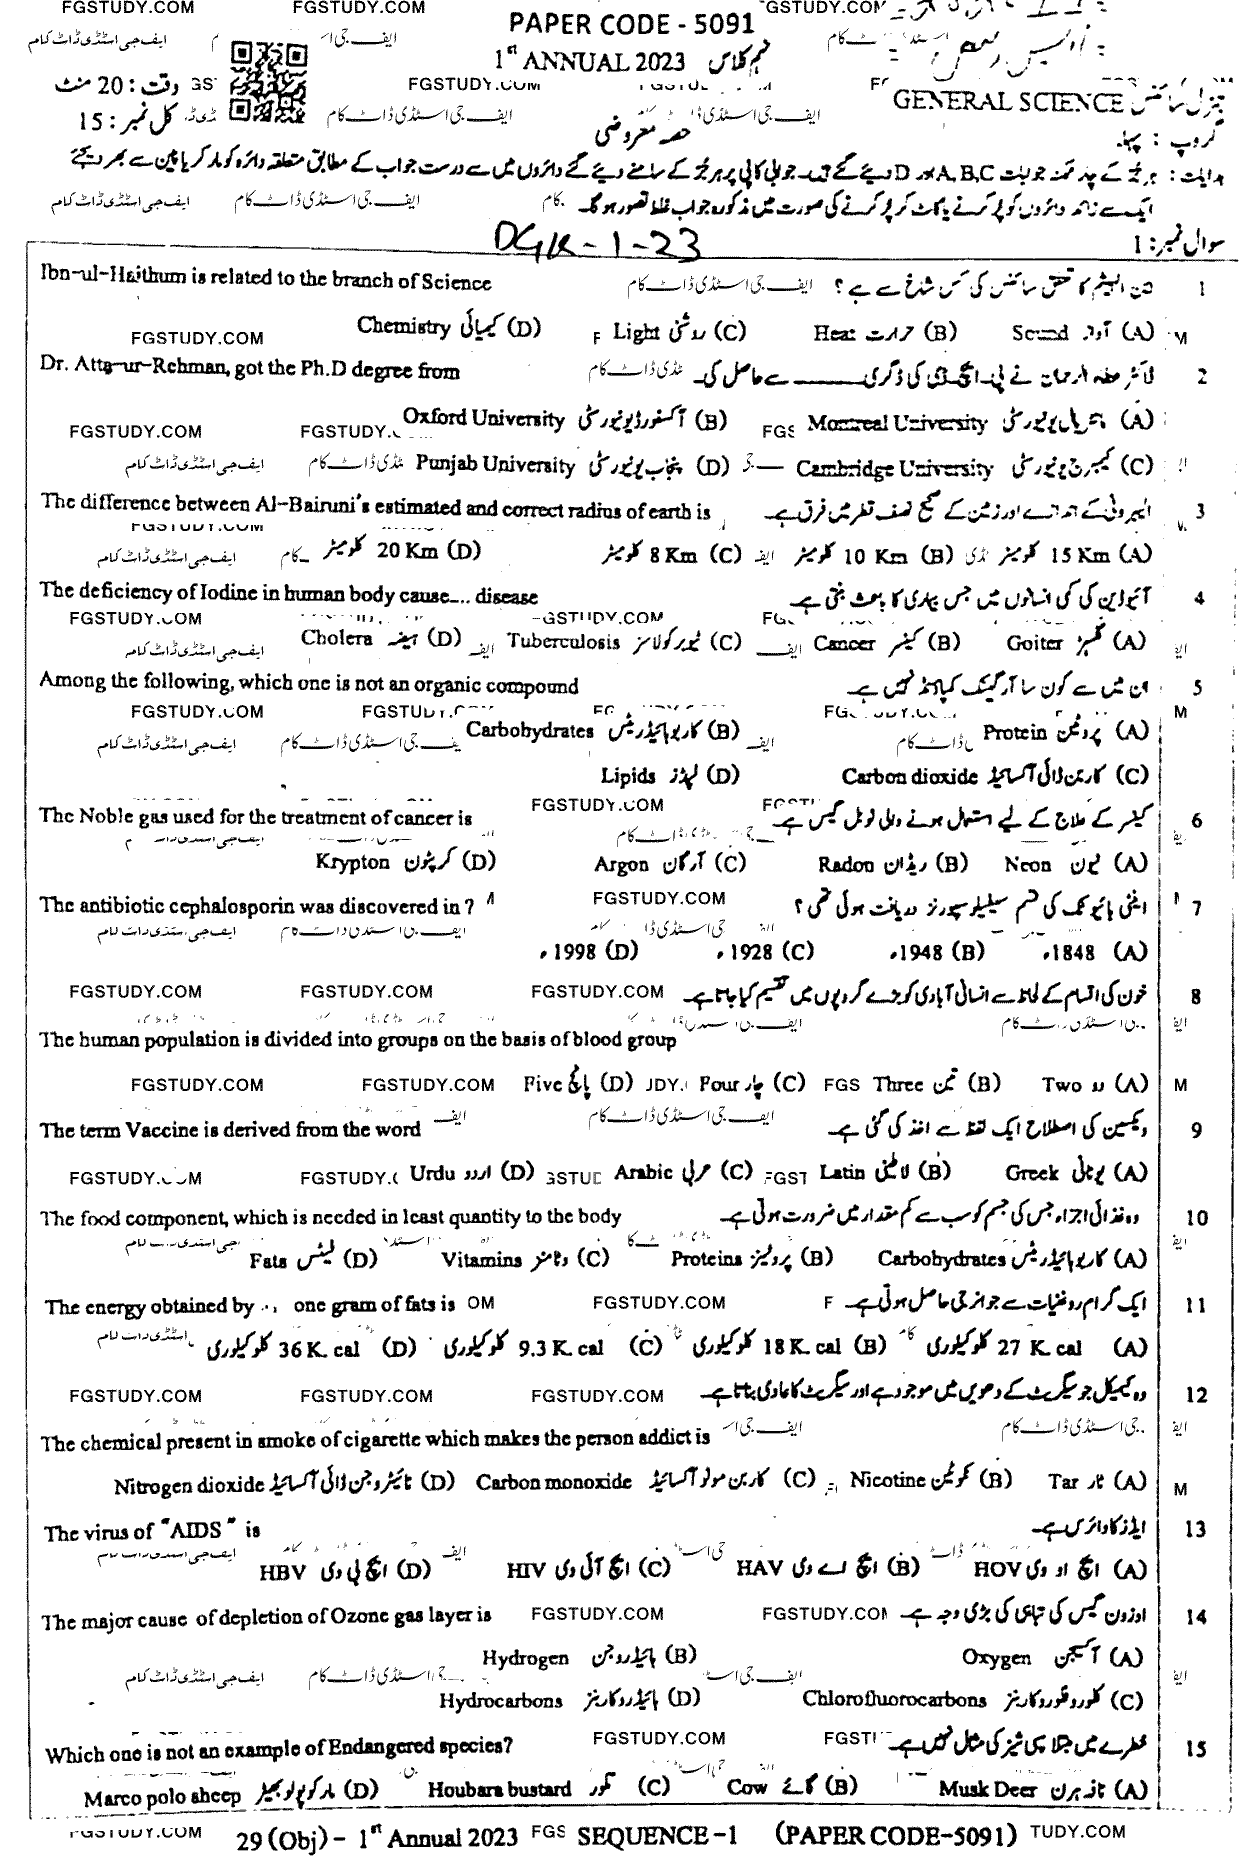 PAPER CODE - 5091
1st ANNUAL 2023 نہم کلاس
وقت : 20 منٹ
GENERAL SCIENCE جنرل سائنس
کل نمبر : 15
حصہ معروضی
گروپ : پہلا
سوال نمبر : 1
DGK-1-23
1 Ibn-ul-Haithum is related to the branch of Science ابن الہیثم کا تعلق سائنس کی کس شاخ سے ہے ؟
(A) Sound آواز (B) Heat حرارت (C) Light روشنی (D) Chemistry کیمیائی
2 Dr. Atta-ur-Rehman, got the Ph.D degree from ڈاکٹر عطاء الرحمان نے پی۔ایچ۔ڈی کی ڈگری ______ سے حاصل کی۔
(A) Montreal University مانٹریال یونیورسٹی (B) Oxford University آکسفورڈ یونیورسٹی
(C) Cambridge University کیمبرج یونیورسٹی (D) Punjab University پنجاب یونیورسٹی
3 The difference between Al-Bairuni's estimated and correct radius of earth is
(A) 15 Km کلومیٹر (B) 10 Km کلومیٹر (C) 8 Km کلومیٹر (D) 20 Km کلومیٹر
4 The deficiency of Iodine in human body cause.... disease آئیوڈین کی کمی انسانوں میں جس بیماری کا باعث بنتی ہے۔
(A) Goiter گلہڑ (B) Cancer کینسر (C) Tuberculosis ٹیوبرکولاسز (D) Cholera ہیضہ
5 Among the following, which one is not an organic compound ان میں سے کون سا آرگینک کمپاؤنڈ نہیں ہے۔
(A) Protein پروٹین (B) Carbohydrates کاربوہائیڈریٹس
(C) Carbon dioxide کاربن ڈائی آکسائیڈ (D) Lipids لپڈز
6 The Noble gas used for the treatment of cancer is کینسر کے علاج کے لیے استعمال ہونے والی نوبل گیس ہے۔
(A) Neon نیون (B) Radon ریڈان (C) Argon آرگان (D) Krypton کرپٹون
7 The antibiotic cephalosporin was discovered in ? اینٹی بائیوٹک کی قسم سیفیلوسپورنز دریافت ہوئی تھی ؟
(A) 1848ء (B) 1948ء (C) 1928ء (D) 1998ء
8 خون کی اقسام کے لحاظ سے انسانی آبادی کو بڑے گروپوں میں تقسیم کیا جاتا ہے۔
The human population is divided into groups on the basis of blood group
(A) Two دو (B) Three تین (C) Four چار (D) Five پانچ
9 The term Vaccine is derived from the word ویکسین کی اصطلاح ایک لفظ سے اخذ کی گئی ہے۔
(A) Greek یونانی (B) Latin لاطینی (C) Arabic عربی (D) Urdu اردو
10 The food component, which is needed in least quantity to the body وہ غذائی اجزاء جس کی جسم کو سب سے کم مقدار میں ضرورت ہوتی ہے۔
(A) Carbohydrates کاربوہائیڈریٹس (B) Proteins پروٹینز (C) Vitamins وٹامنز (D) Fats فیٹس
11 The energy obtained by one gram of fats is ایک گرام روغنیات سے جو انرجی حاصل ہوتی ہے۔
(A) 27 K. cal کلوکیلوری (B) 18 K. cal کلوکیلوری (C) 9.3 K. cal کلوکیلوری (D) 36 K. cal کلوکیلوری
12 وہ کیمیکل جو سگریٹ کے دھویں میں موجود ہے اور سگریٹ کا عادی بناتا ہے۔
The chemical present in smoke of cigarette which makes the person addict is
(A) Tar ٹار (B) Nicotine نکوٹین (C) Carbon monoxide کاربن مونو آکسائیڈ (D) Nitrogen dioxide نائٹروجن ڈائی آکسائیڈ
13 The virus of "AIDS" is ایڈز کا وائرس ہے۔
(A) HOV ایچ او وی (B) HAV ایچ اے وی (C) HIV ایچ آئی وی (D) HBV ایچ بی وی
14 The major cause of depletion of Ozone gas layer is اوزون گیس کی تباہی کی بڑی وجہ ہے۔
(A) Oxygen آکسیجن (B) Hydrogen ہائیڈروجن
(C) Chlorofluorocarbons کلوروفلوروکاربنز (D) Hydrocarbons ہائیڈروکاربنز
15 Which one is not an example of Endangered species? خطرے میں مبتلا سپی شیز کی مثال نہیں ہے۔
(A) Musk Deer نافہ ہرن (B) Cow گائے (C) Houbara bustard تلور (D) Marco polo sheep مارکوپولو بھیڑ
29 (Obj) - 1st Annual 2023 SEQUENCE -1 (PAPER CODE-5091)
FGSTUDY.COM
ایف جی اسٹڈی ڈاٹ کام